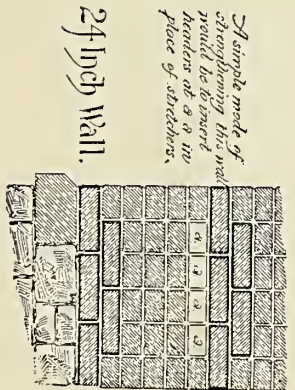 A simple mode of
strengthening this wall
would be to insert
headers at a a in
place of stretchers.
24 Inch Wall.
a a a a